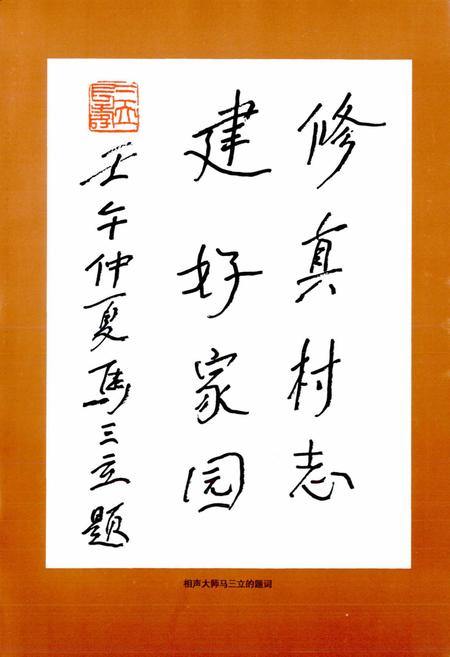 修真村志
建好家园
壬午仲夏马三立题
三立
相声大师马三立的题词